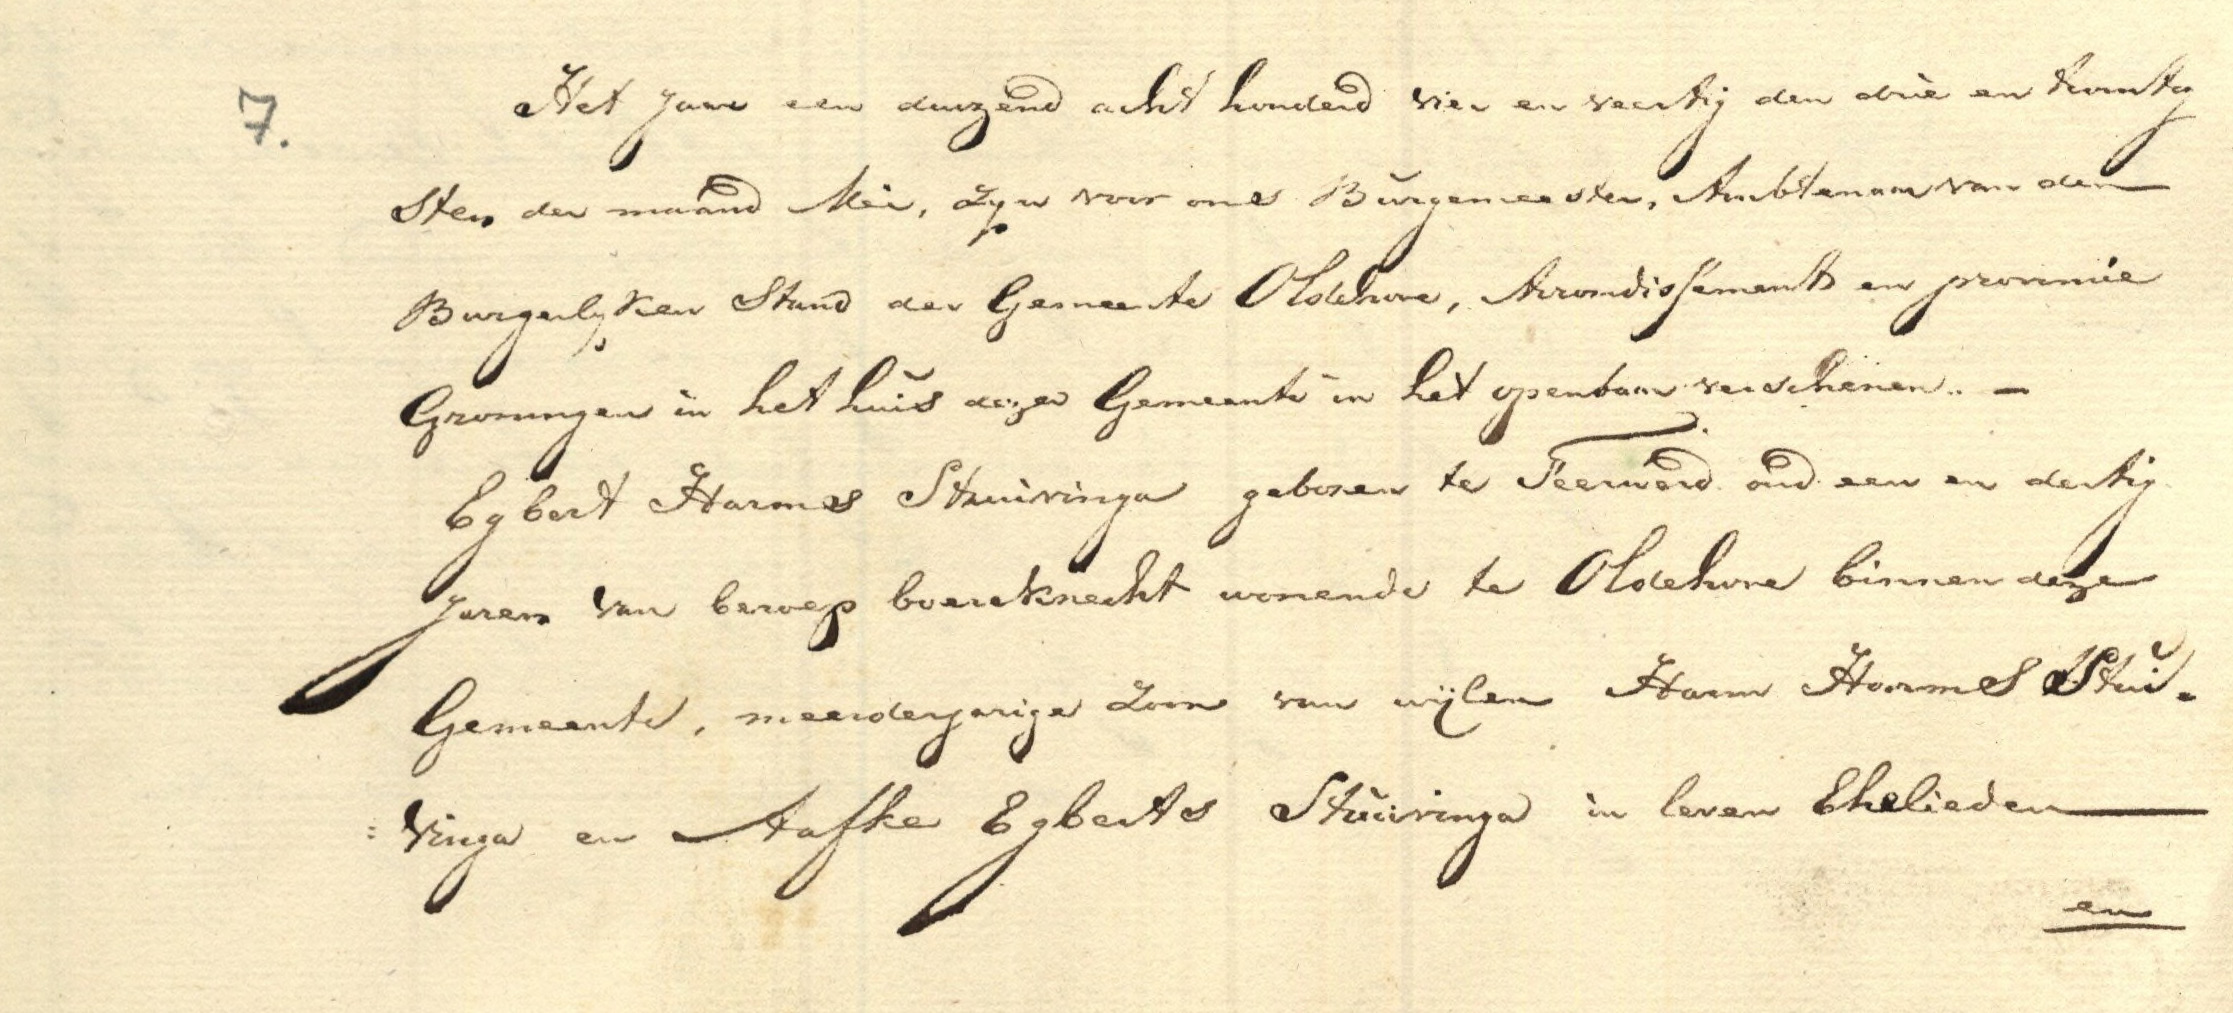 7.
Het Jaar een duizend acht honderd vier en veertig den drie en twintig
sten der maand Mei, zyn voor ons Burgemeester, Ambtenaar van den
Burgerlyken Stand der Gemeente Oldehove, Arrondissement en provincie
Groningen in het huis dezer Gemeente in het openbaar verschenen. —
Egbert Harmes Stuivinga geboren te Feerwerd oud een en dertig
Jaren van beroep boereknecht wonende te Oldehove binnen deze
Gemeente, meerderjarige Zoon van wijlen Harm Harmes Stui-
=vinga en Aafke Egberts Stuivinga in leven Ehelieden —
en